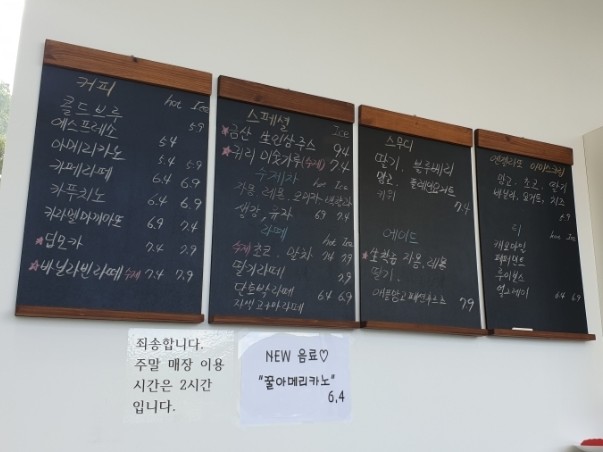 커피
hot Ice
콜드브루 5.9
에스프레소
아메리카노 5.4
카페라떼 5.4 5.9
카푸치노 6.4 6.9
카라멜마끼아또 6.4 6.9
6.9 7.4
★딥모카 7.4 7.9
★바닐라빈라떼 (수제) 7.4 7.9
스페셜 Ice
★금산 生인삼주스 9.4
★귀리 미숫가루(수제) 7.4
수제차 hot Ice
자몽, 레몬, 오미자
생강, 유자 6.9 7.4
라떼 hot Ice
수제초코, 말차 7.4 7.9
딸기라떼 7.9
단호박라떼 6.4 6.9
자색고구마라떼
스무디
딸기, 블루베리
망고, 플레인요거트
키위 7.4
에이드
★生착즙 자몽, 레몬
딸기,
7.9
아이스크림
망고, 초코, 딸기
바닐라, 요거트, 치즈
5.9
티 hot Ice
캐모마일
페퍼민트
루이보스
얼그레이 6.4 6.9
죄송합니다.
주말 매장 이용
시간은 2시간
입니다.
NEW 음료♡
"꿀아메리카노"
6.4